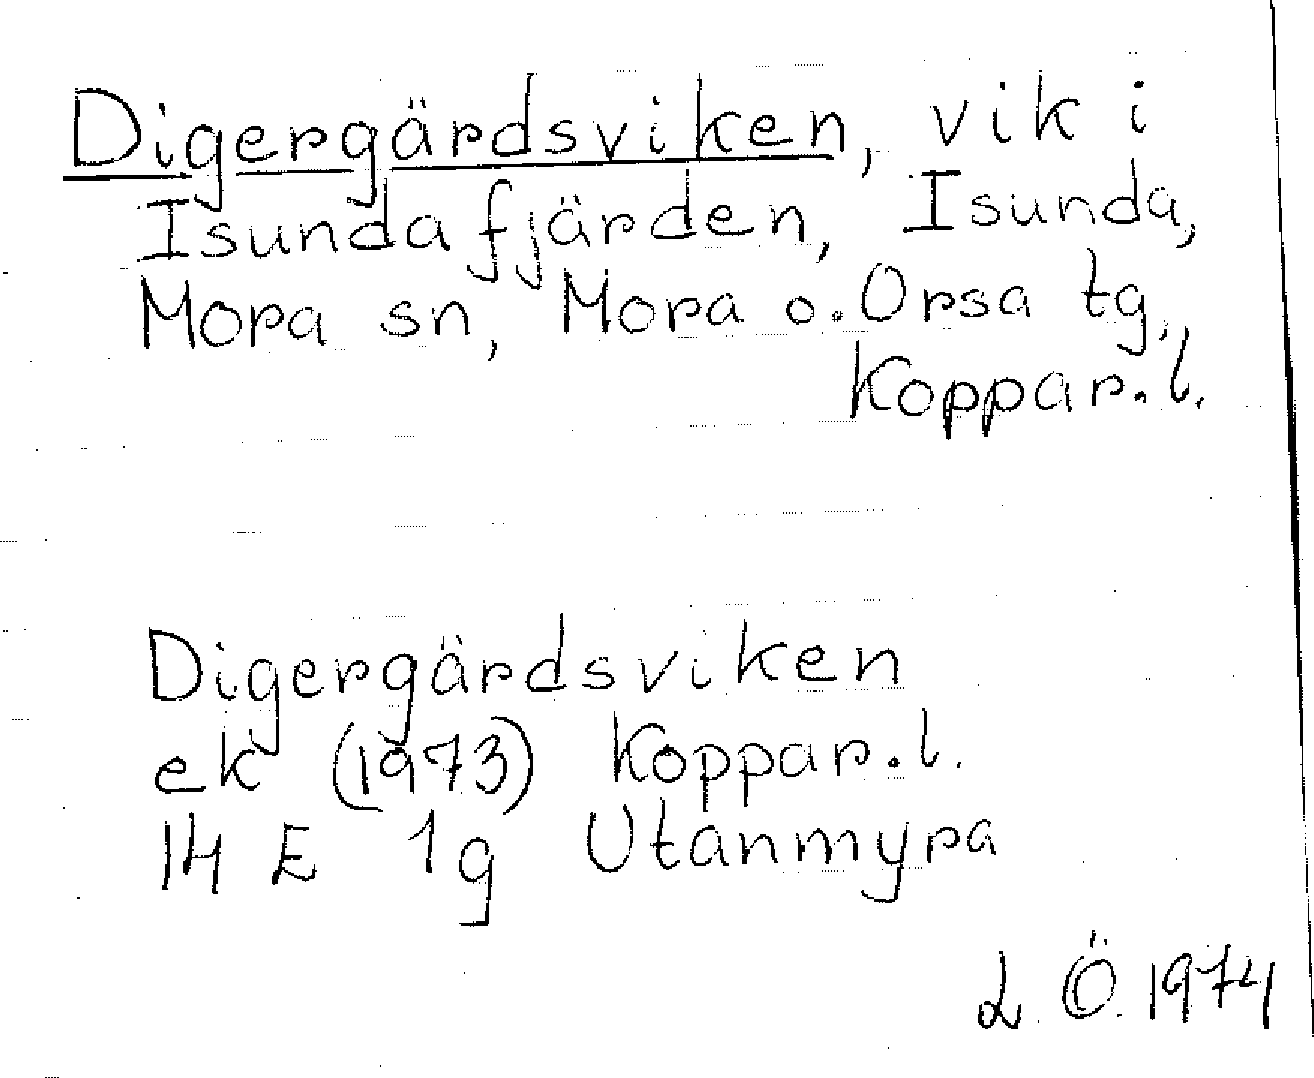 Digergärdsviken, vik i
Isundafjärden, Isunda,
Mora sn, Mora o. Orsa tg,
Koppar.l.
Digergärdsviken
ek (1973) Koppar.l.
14 E 1g Utanmyra
L. Ö. 1974